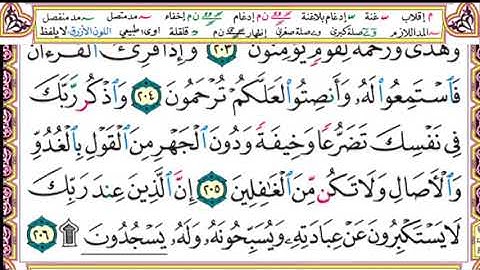 م إقلاب س غنة إدغام بلاغنة ن م إدغام ن م إخفاء مد متصل مد منفصل
المد اللازم صلة كبرى صلة صغرى إظهار ن م قلقلة اوى طبيعي اللون الأزرق لا يلفظ
وَهُدًى وَرَحْمَةٌ لِّقَوْمٍ يُؤْمِنُونَ ٢٠٣ وَإِذَا قُرِئَ ٱلْقُرْءَانُ
فَٱسْتَمِعُوا۟ لَهُۥ وَأَنصِتُوا۟ لَعَلَّكُمْ تُرْحَمُونَ ٢٠٤ وَٱذْكُر رَّبَّكَ
فِى نَفْسِكَ تَضَرُّعًا وَخِيفَةً وَدُونَ ٱلْجَهْرِ مِنَ ٱلْقَوْلِ بِٱلْغُدُوِّ
وَٱلْـَٔاصَالِ وَلَا تَكُن مِّنَ ٱلْغَـٰفِلِينَ ٢٠٥ إِنَّ ٱلَّذِينَ عِندَ رَبِّكَ
لَا يَسْتَكْبِرُونَ عَنْ عِبَادَتِهِۦ وَيُسَبِّحُونَهُۥ وَلَهُۥ يَسْجُدُونَ ۩ ٢٠٦